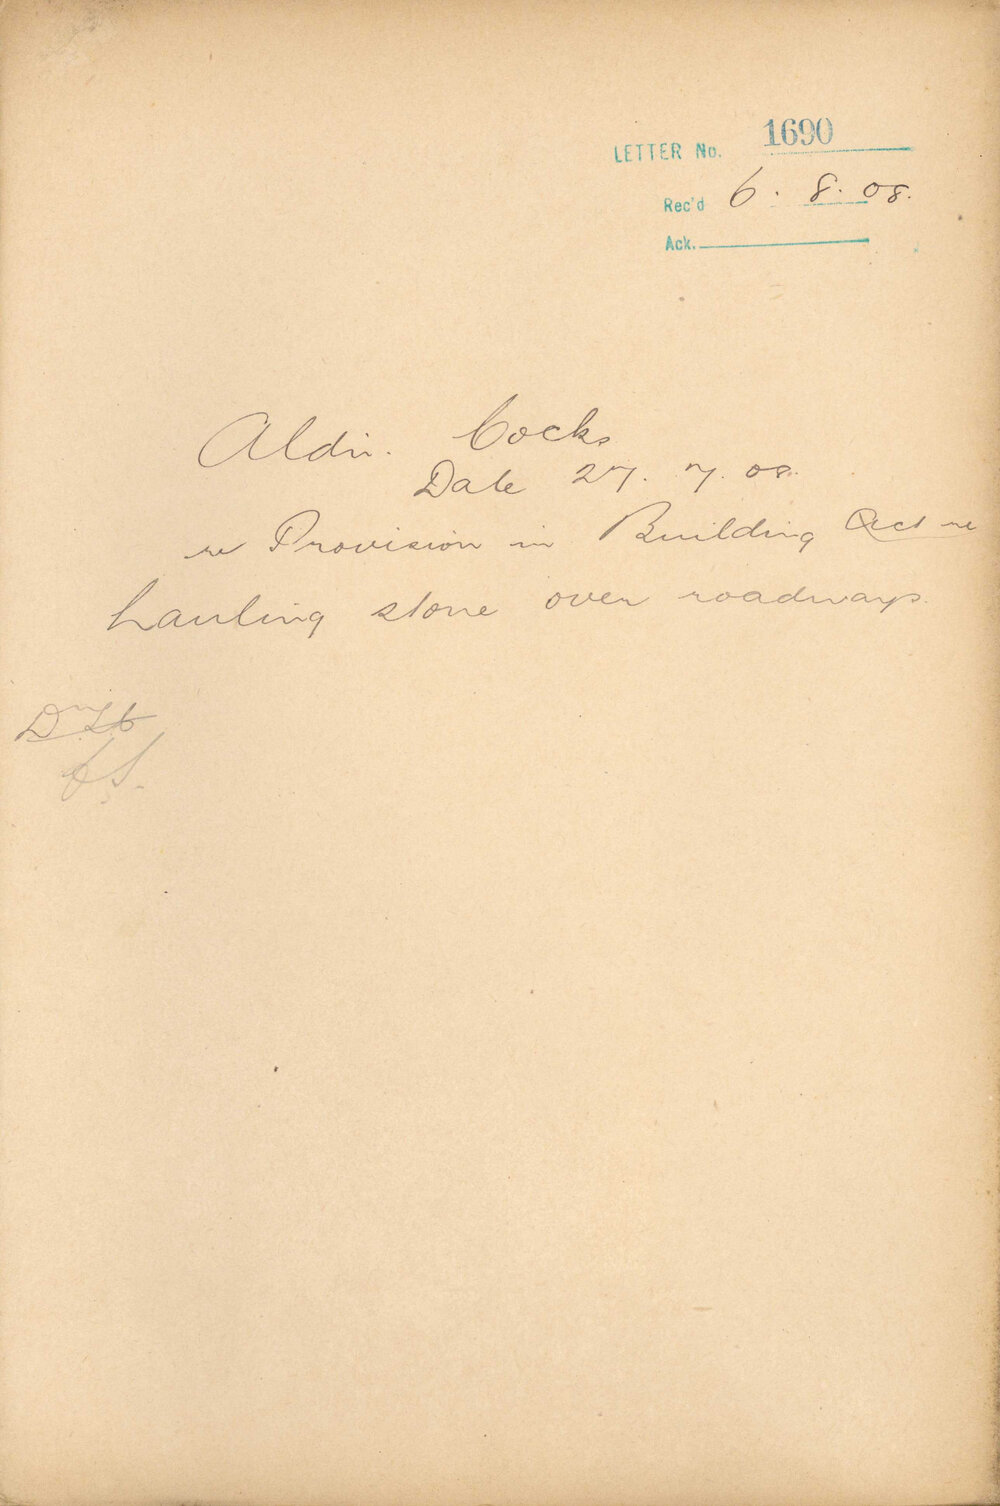 LETTER No. 1690
Rec'd 6. 8. 08.
Ack.
Aldn. Cocks
Date 27. 7. 08.
re Provision in Building Act re
hauling stone over roadways.